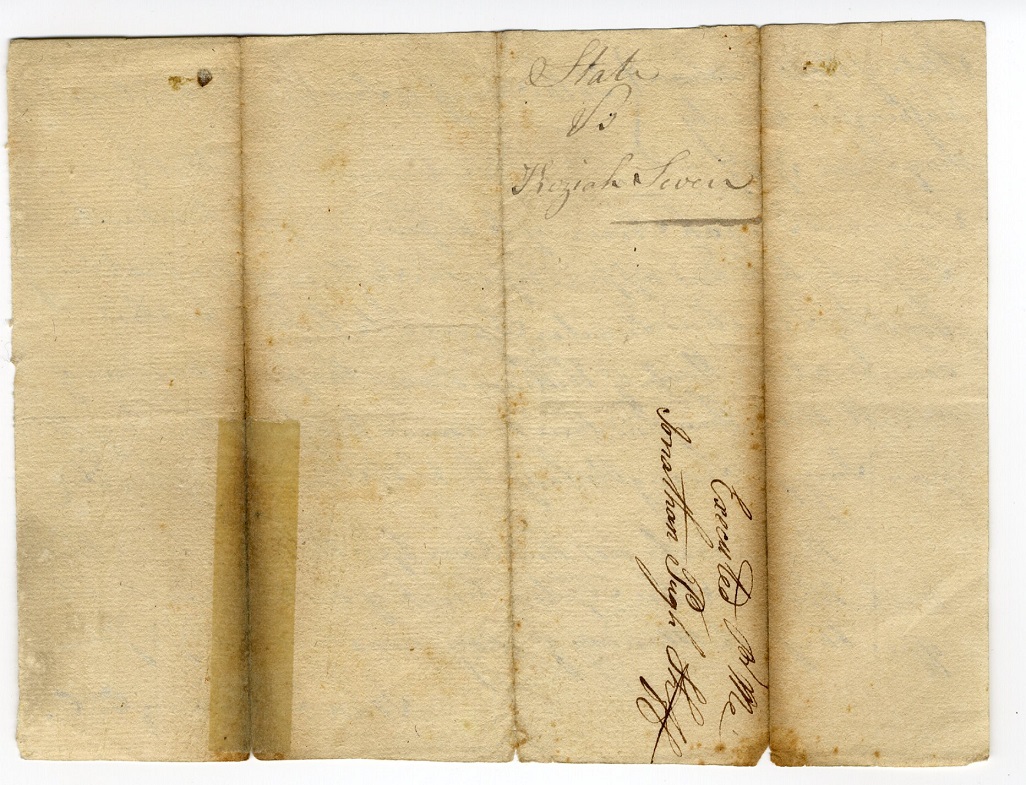 State
Vs
Keziah Sevier
Executed pr Me
Jonathan Pugh Shff